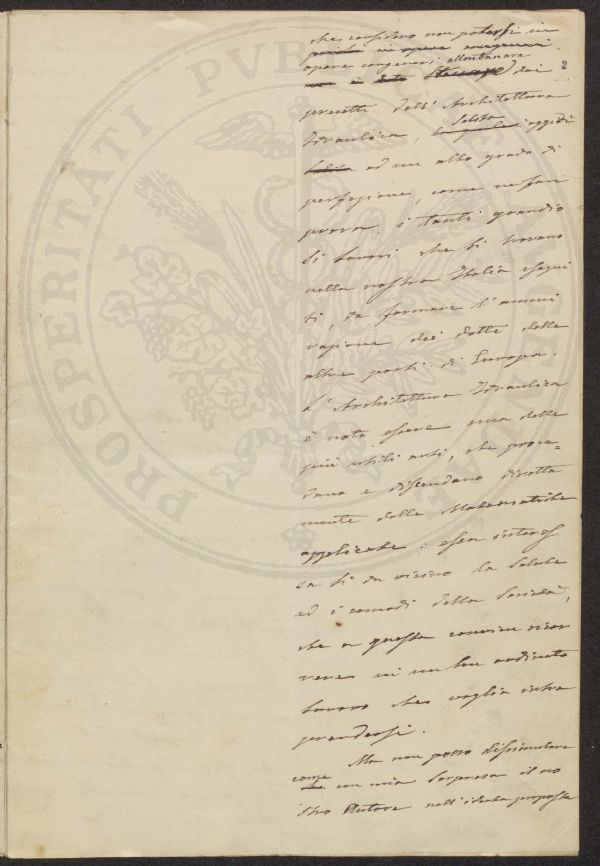 che considero non potersi in
opere congeneri allontanare
non è dato dai 2
precetti dell'Architettura
Idraulica, la quale salita oggidì
salita ad un alto grado di
perfezione, come ne fan
prova i tanti grandio
si lavori che si trovano
nella nostra Italia esegui
ti, da formare l'ammi
razione dei dotti delle
altre parti di Europa.
L'Architettura Idraulica
è noto essere una delle
più utili arti, che proce=
dano e discendano diretta
mente dalle Matematiche
applicate: essa interes
sa sì da vicino la salute
ed i comodi della Società,
che a questa convien ricor
rere in un ben ordinato
lavoro che voglia intra
prendersi.
Ma non posso dissimulare
come con mia sorpresa il no
stro Autore nell'ideata proposta
PROSPERITATI PUBLICAE